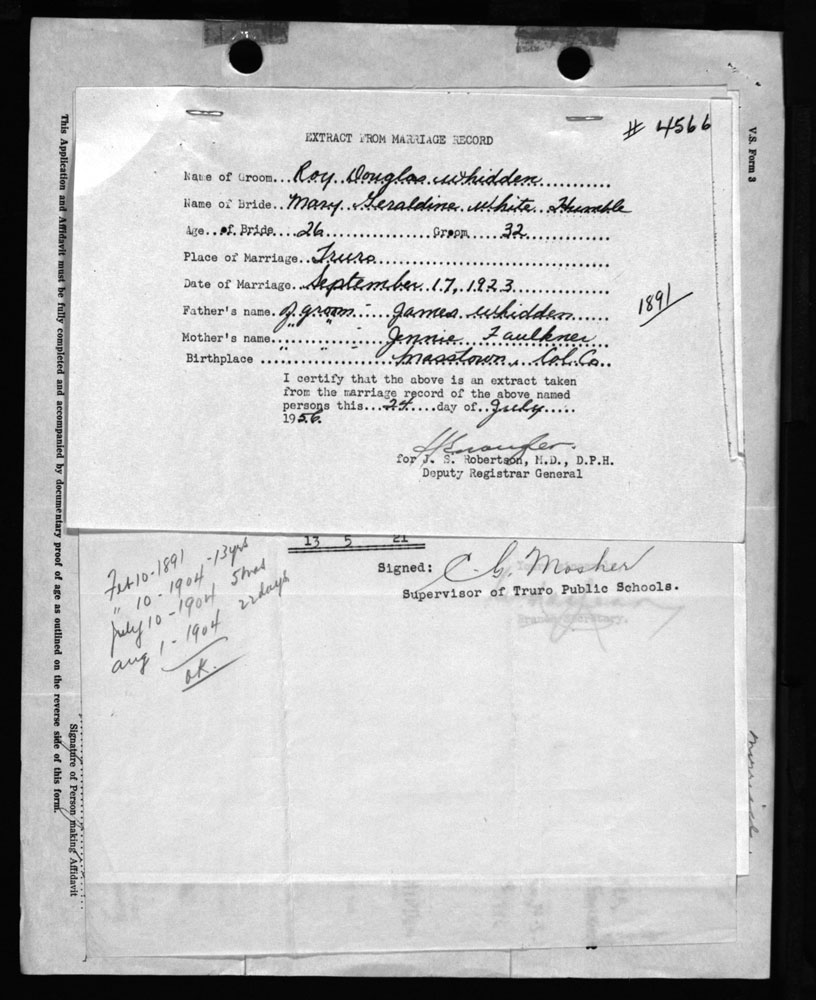 EXTRACT FROM MARRIAGE RECORD
# 4566
Name of Groom... Roy Douglas Whidden
Name of Bride.. Mary Geraldine White Humble
Age.. of Bride.... 26 Groom.... 32
Place of Marriage.. Truro
Date of Marriage.. September 17, 1923
Father's name. of groom James Whidden
1891
Mother's name " " Jennie Faulkner
Birthplace Masstown, Col. Co.
I certify that the above is an extract taken
from the marriage record of the above named
persons this... 24....day of.. July.....
1956.
for J. S. Robertson, M.D., D.P.H.
Deputy Registrar General
13 5 21
Signed: C. G. Mosher
Supervisor of Truro Public Schools.
Branch Secretary.
Feb 10-1891
" 10-1904 -13yrs
July 10-1904 5mos
Aug 1-1904 22days
OK.
V.S. Form 3
This Application and Affidavit must be fully completed and accompanied by documentary proof of age as outlined on the reverse side of this form.
Signature of Person making Affidavit